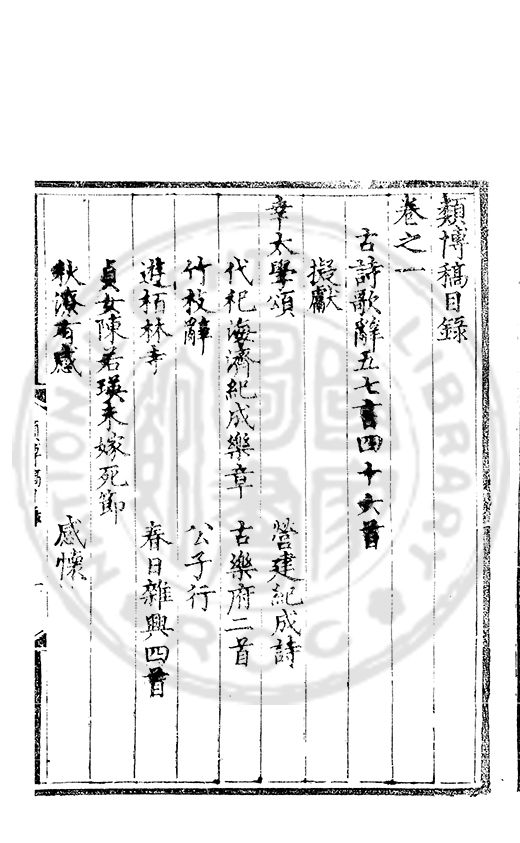 類博稿目錄
卷之一
古詩歌辭五七言四十六首
擬獻
幸太學頌 營建紀成詩
代祀海濟紀成樂章 古樂府二首
竹枝辭 公子行
遊栢林寺 春日雜興四首
貞女陳若瑛未嫁死節
秋懷有感 感懷